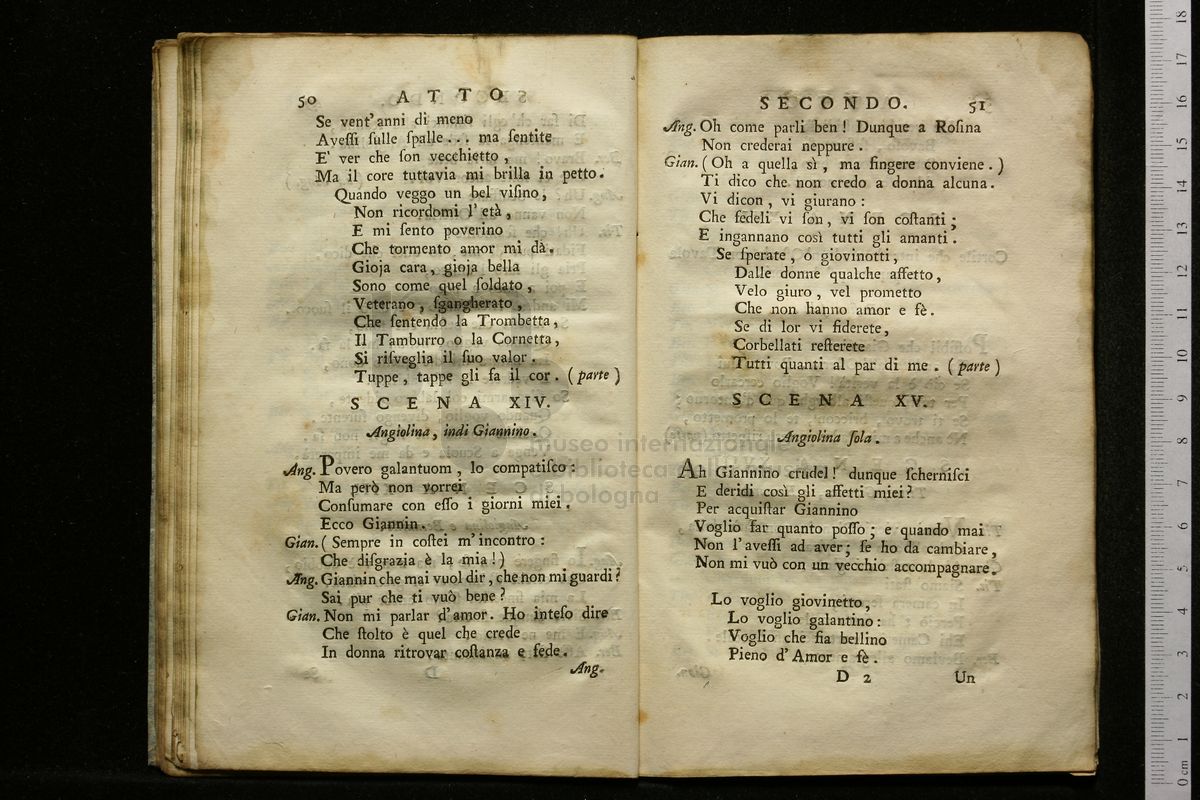 50 ATTO
Se vent'anni di meno
Aveſſi ſulle ſpalle... ma ſentite
E' ver che ſon vecchietto,
Ma il core tuttavia mi brilla in petto.
Quando veggo un bel viſino,
Non ricordomi l'età,
E mi ſento poverino
Che tormento amor mi dà.
Gioja cara, gioja bella
Sono come quel ſoldato,
Veterano, ſgangherato,
Che ſentendo la Trombetta,
Il Tamburro o la Cornetta,
Si riſveglia il ſuo valor.
Tuppe, tappe gli fa il cor. (parte)
SCENA XIV.
Angiolina, indi Giannino.
Ang. Povero galantuom, lo compatiſco:
Ma però non vorrei
Conſumare con eſſo i giorni miei.
Ecco Giannin.
Gian. (Sempre in coſtei m'incontro:
Che diſgrazia è la mia!)
Ang. Giannin che mai vuol dir, che non mi guardi?
Sai pur che ti vuò bene?
Gian. Non mi parlar d'amor. Ho inteſo dire
Che ſtolto è quel che crede
In donna ritrovar coſtanza e fede.
Ang.
SECONDO. 51
Ang. Oh come parli ben! Dunque a Roſina
Non crederai neppure.
Gian. (Oh a quella sì, ma fingere conviene.)
Ti dico che non credo a donna alcuna.
Vi dicon, vi giurano:
Che fedeli vi ſon, vi ſon coſtanti;
E ingannano così tutti gli amanti.
Se ſperate, o giovinotti,
Dalle donne qualche affetto,
Velo giuro, vel prometto
Che non hanno amor e fè.
Se di lor vi fiderete,
Corbellati reſterete
Tutti quanti al par di me. (parte)
SCENA XV.
Angiolina ſola.
Ah Giannino crudel! dunque ſcherniſci
E deridi così gli affetti miei?
Per acquiſtar Giannino
Voglio far quanto poſſo; e quando mai
Non l'aveſſi ad aver; ſe ho da cambiare,
Non mi vuò con un vecchio accompagnare.
Lo voglio giovinetto,
Lo voglio galantino:
Voglio che ſia bellino
Pieno d'Amor e fè.
D 2 Un
museo internazionale
biblioteca della musica
di bologna
0 cm 1 2 3 4 5 6 7 8 9 10 11 12 13 14 15 16 17 18